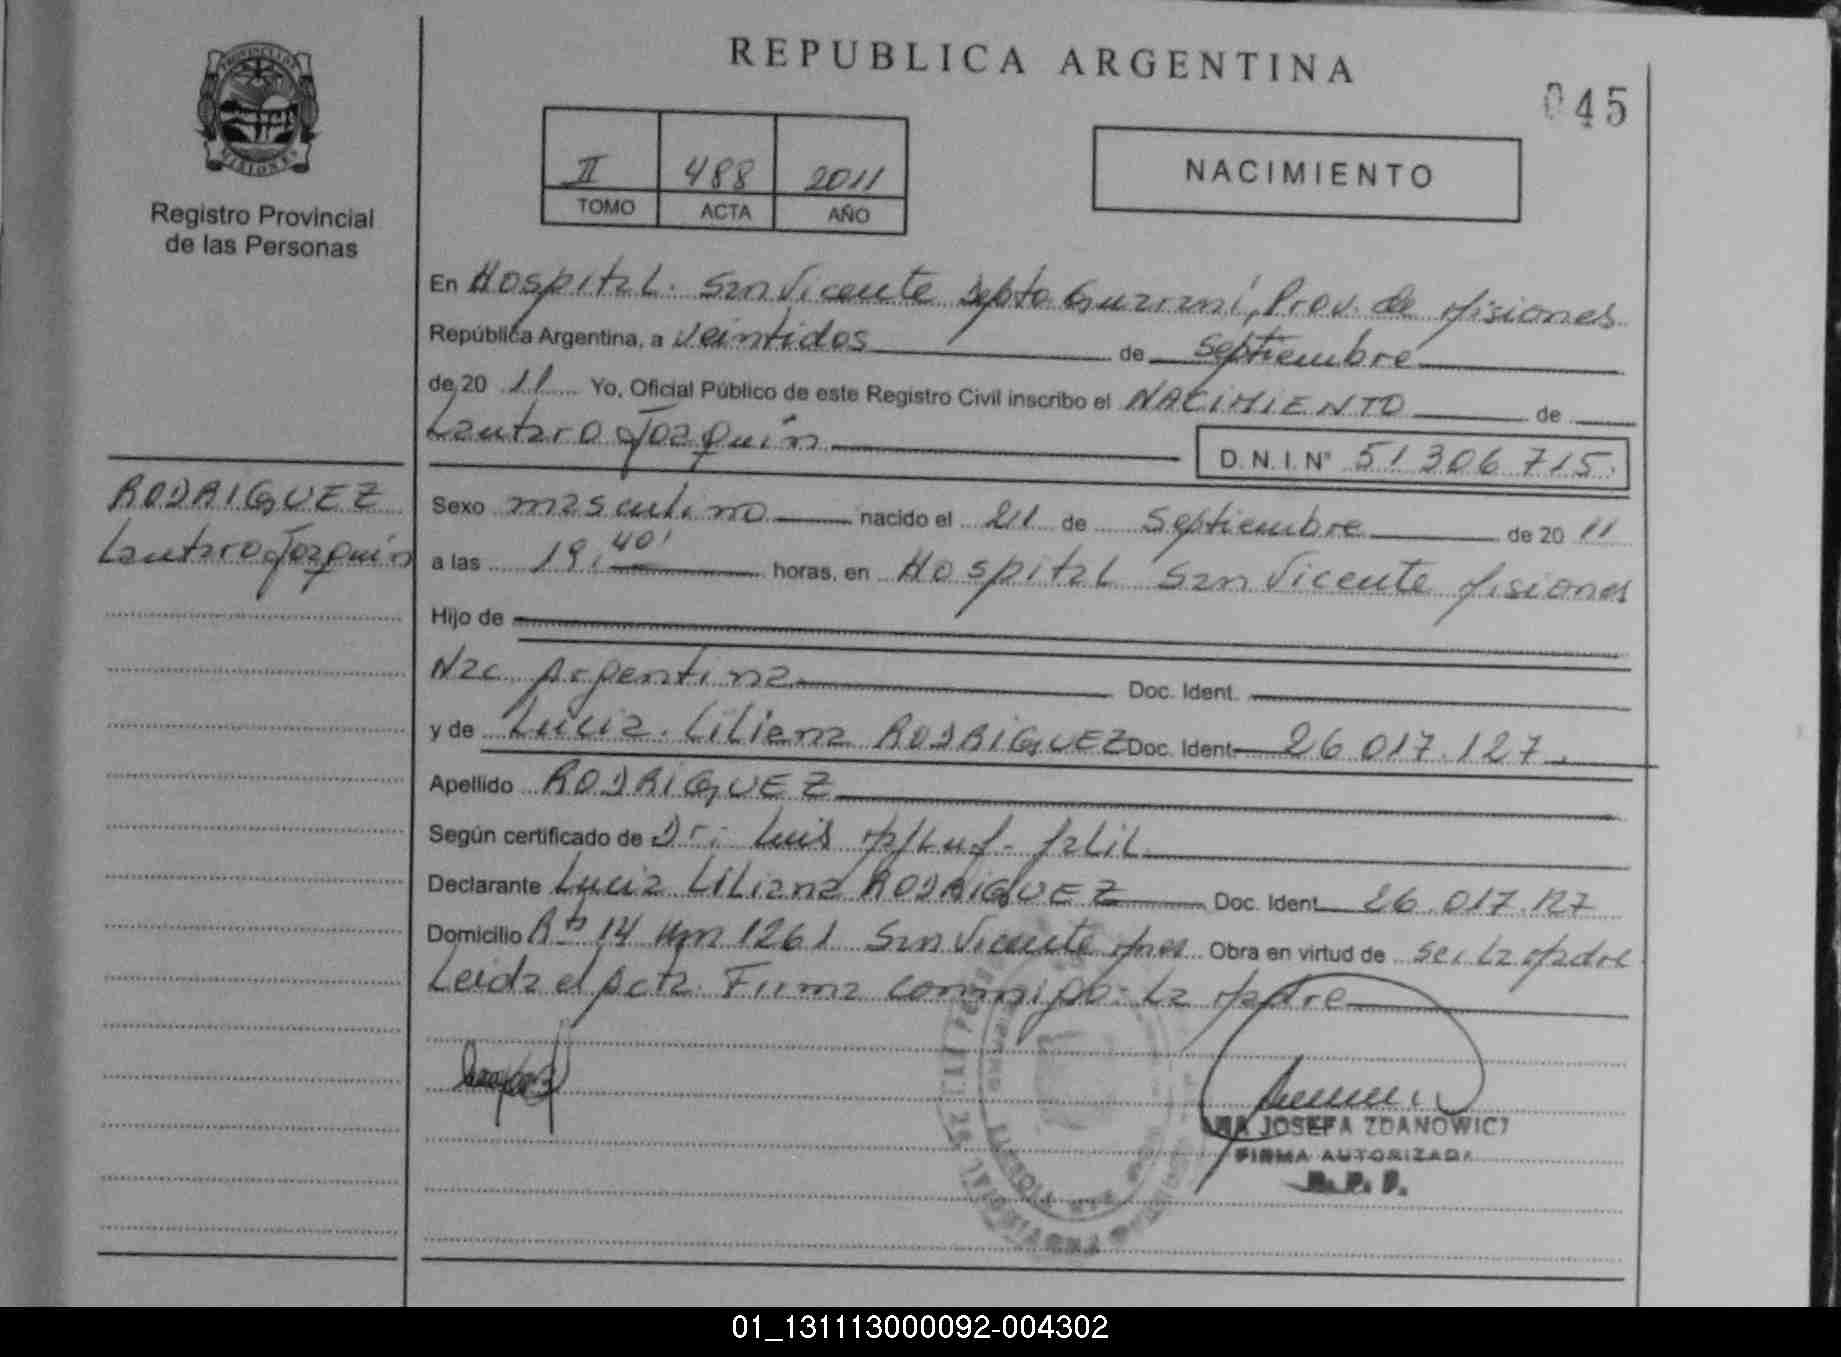 REPUBLICA ARGENTINA
045
PROVINCIA DE
MISIONES
Registro Provincial
de las Personas
II 488 2011
TOMO ACTA AÑO
NACIMIENTO
En Hospital. San Vicente Depto Guaraní, Prov. de Misiones
República Argentina, a veintidos de Septiembre
de 20 11 Yo, Oficial Público de este Registro Civil inscribo el NACIMIENTO de
Lautaro Joaquín
D.N.I.Nº 51306715.
RODRIGUEZ
Lautaro Joaquín
Sexo masculino nacido el 21 de Septiembre de 20 11
a las 19,40' horas, en Hospital San Vicente Misiones
Hijo de
Nac Argentina Doc. Ident.
y de Lucia. Liliana RODRIGUEZ Doc. Ident 26.017.127.
Apellido RODRIGUEZ
Según certificado de Dr; Luis Jalil
Declarante Lucia Liliana RODRIGUEZ Doc. Ident 26.017.127
Domicilio Rta 14 Km 1261 San Vicente Mnes Obra en virtud de ser La Madre
Leida el Acta. Firma conmigo: La Madre
JOSEFA ZDANOWICZ
FIRMA AUTORIZADA
R.P.P.
01_131113000092-004302